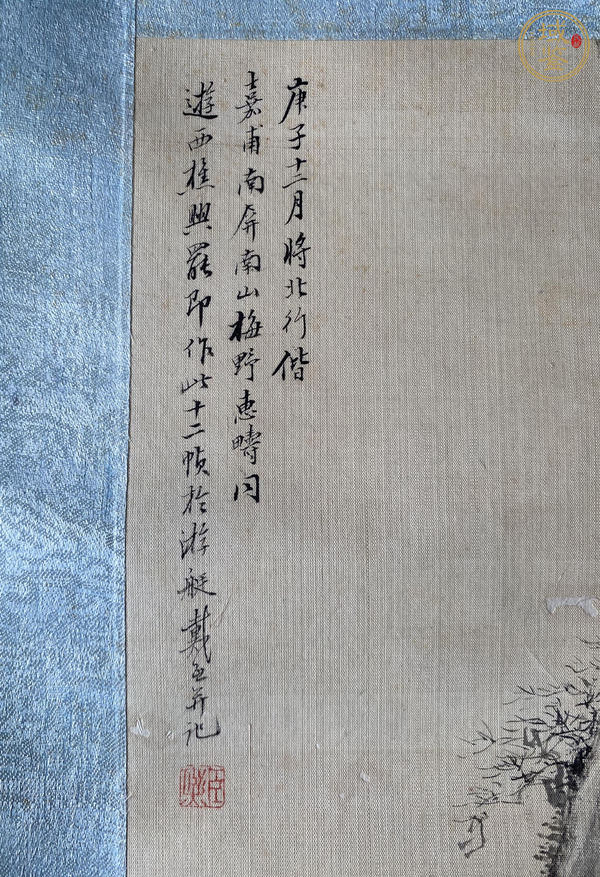 庚子十二月將北行偕
嘉甫南屏南山梅野惠疇同
遊西樵興罷即作此十二幀於游艇戴并記